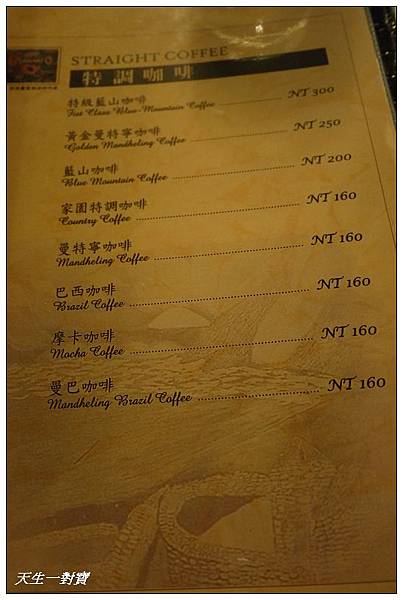 STRAIGHT COFFEE
特調咖啡
特級藍山咖啡 NT 300
Fist Class Blue-Mountain Coffee
黃金曼特寧咖啡 NT 250
Golden Mandheling Coffee
藍山咖啡 NT 200
Blue Mountain Coffee
家園特調咖啡 NT 160
Country Coffee
曼特寧咖啡 NT 160
Mandheling Coffee
巴西咖啡 NT 160
Brazil Coffee
摩卡咖啡 NT 160
Mocha Coffee
曼巴咖啡 NT 160
Mandheling Brazil Coffee
天生一對寶